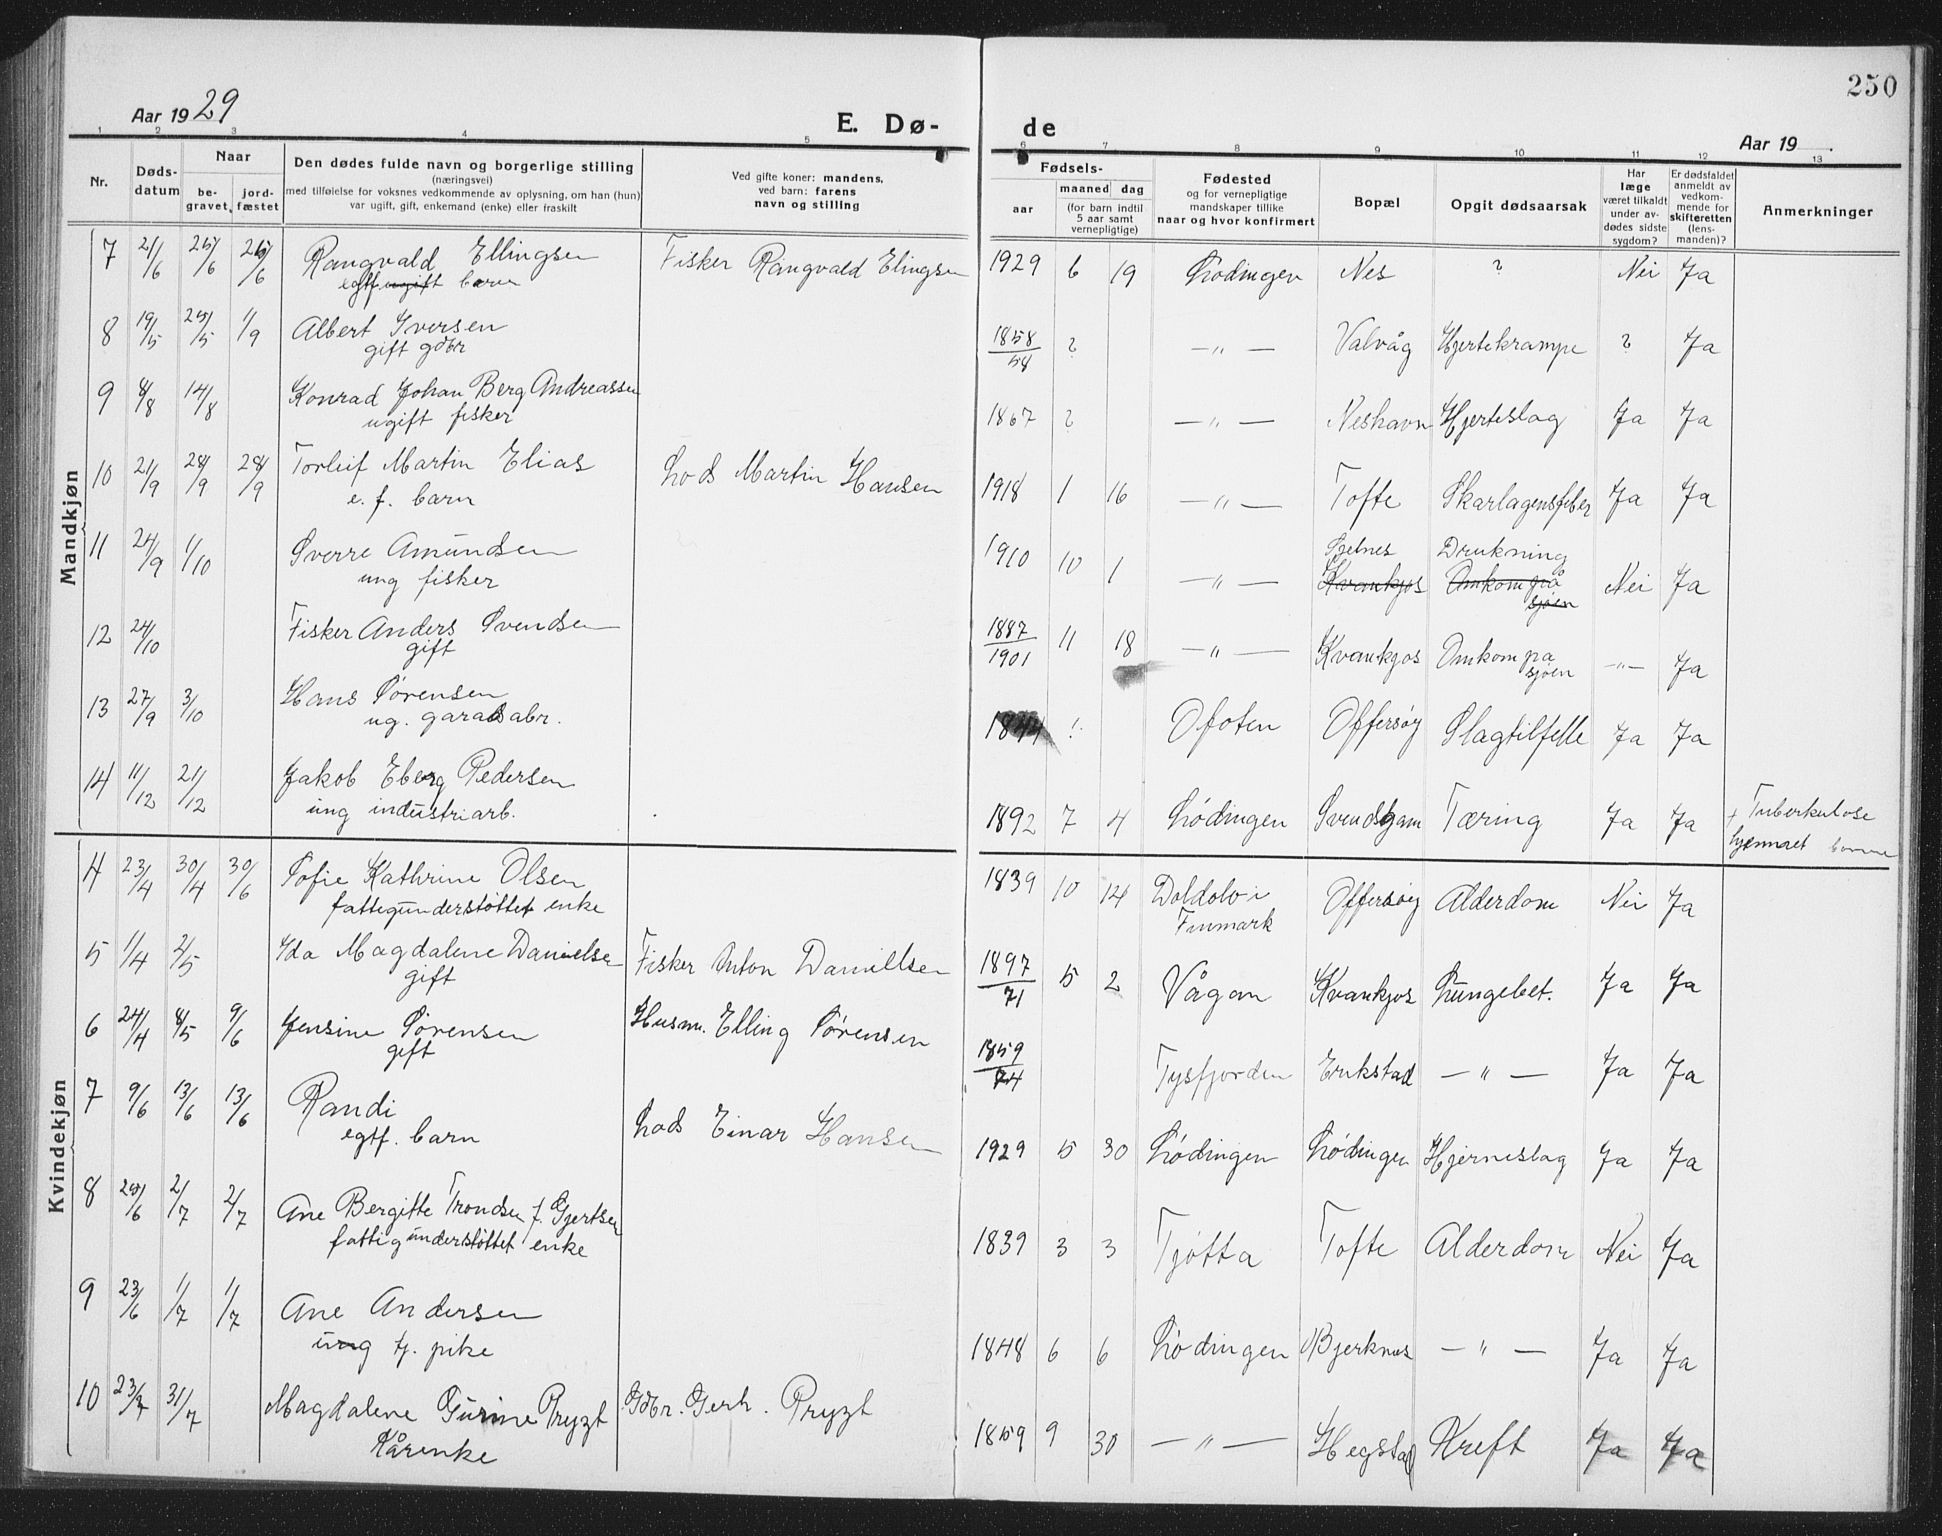 250
Aar 1929
E. Dø-
de
Aar 19
1 2 3 4 5 6 7 8 9 10 11 12 13
Nr.
Døds-
datum
Naar
be-
gravet,
jord-
fæstet
Den dødes fulde navn og borgerlige stilling
(næringsvei)
med tilføielse for voksnes vedkommende av oplysning, om han (hun)
var ugift, gift, enkemand (enke) eller fraskilt
Ved gifte koner: mandens,
ved barn: farens
navn og stilling
Fødsels-
aar
maaned dag
(for barn indtil
5 aar samt
vernepligtige)
Fødested
og for vernepligtige
mandskaper tillike
naar og hvor konfirmert
Bopæl
Opgit dødsaarsak
Har
læge
været tilkaldt
under av-
dødes sidste
sygdom?
Er dødsfaldet
anmeldt av
vedkom-
mende for
skifteretten
(lens-
manden)?
Anmerkninger
Mandkjøn
7 21/6 25/6 25/6 Rangvald Ellingsen Fisker Rangvald Elingsen 1929 6 19 Lødingen Nes ? Nei Ja
egtf ugift barn
8 19/5 25/5 1/9 Albert Iversen 1858/54 ? -„- Valvåg Hjertekrampe ? Ja
gift gdbr
9 8/8 14/8 Konrad Johan Berg Andreassen 1867 ? -„- Neshavn Hjerteslag Ja Ja
ugift fisker
10 21/9 28/9 28/9 Torleif Martin Elias Lods Martin Hansen 1918 1 16 -„- Tofte Skarlagensfeber Ja Ja
e. f. barn
11 24/9 1/10 Sverre Amundsen 1910 10 1 -„- Drukning Nei Ja
ung fisker Kvankjos Omkom på
sjøen
12 24/10 Fisker Anders Svendsen 1887/1901 11 18 -„- Kvankjos Omkom på -„- Ja
gift sjøen
13 27/9 3/10 Hans Sørensen 1844 ? Ofoten Offersøy Slagtilfelle Ja Ja
ug.
14 11/12 21/12 Jakob Eberg Pedersen 1892 7 4 Lødingen Svendsgam Tæring Ja Ja + Tuberkulose
ung industriarb. hjemmet
Kvindekjøn
4 23/4 30/4 30/6 Sofie Kathrine Olsen 1839 10 14 i Offersøy Alderdom Nei Ja
fattigunderstøttet enke Finmark
5 1/4 2/5 Ida Magdalene Danielsen Fisker Anton Daniellsen 1897/71 5 2 Vågan Kvankjos Lungebet. Ja Ja
gift
6 24/4 8/5 9/6 Jensine Sørensen Husm. Elling Sørensen 1859/74 Tysfjorden Erikstad -„- Ja Ja
gift
7 9/6 13/6 13/6 Randi Lods Einar Hansen 1929 5 30 Lødingen Lødingen Hjerneslag Ja Ja
egtf. barn
8 25/6 2/7 2/7 Ane Bergitte Trondsen f. Gjertsen 1839 3 3 Tjøtta Tofte Alderdom Nei Ja
fattigunderstøttet enke
9 23/6 1/7 1/7 Ane Andersen 1848 6 6 Lødingen Bjerknes -„- Ja Ja
ung tj. pike
10 23/7 31/7 Magdalene Gurine Pryzt Gdbr. Gerh. Pryzt 1859 9 30 -„- Hegstad Kreft Ja Ja
Kårenke